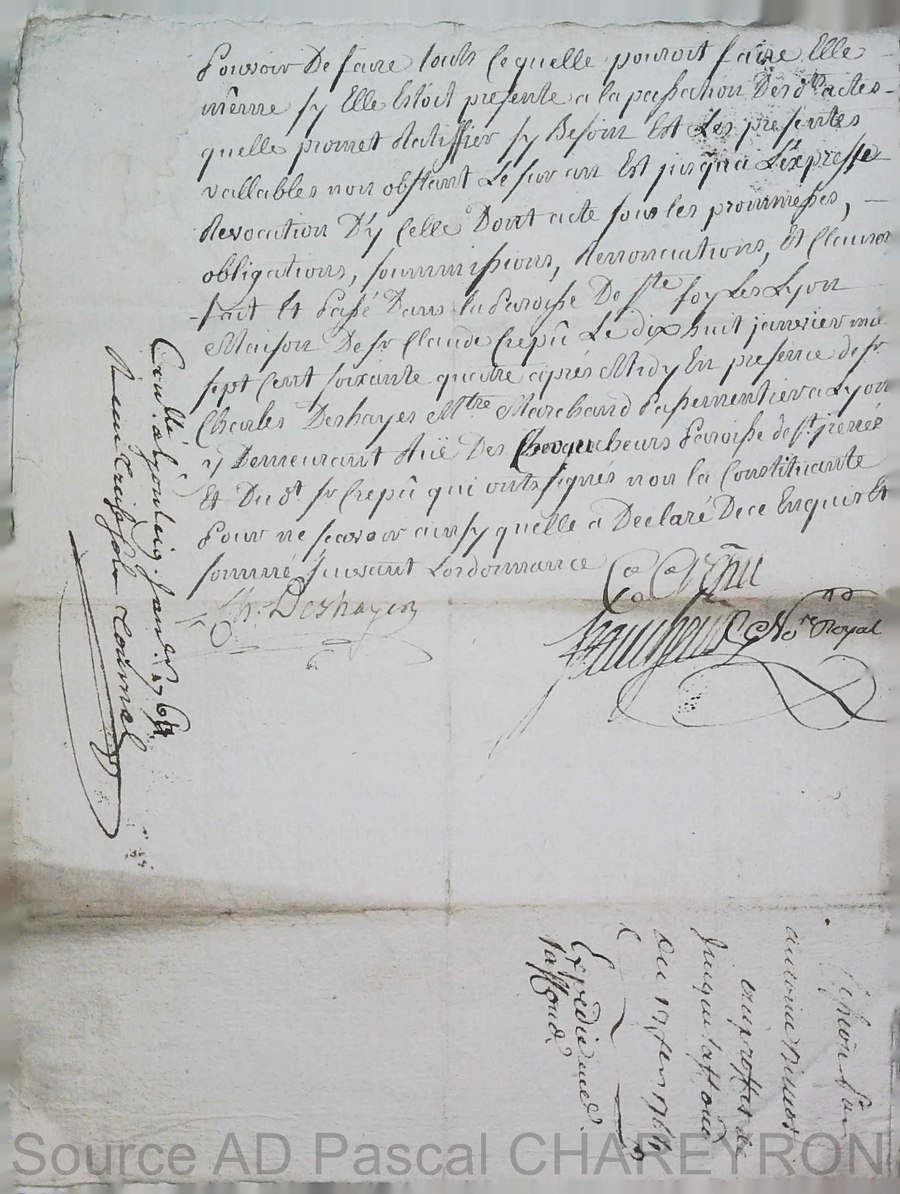 Pouvoir De faire touts Ce quelle pouroit faire Elle
même sy Elle Estoit presente a la passation Desd.ts actes
quelle promet Ratiffier sy Besoin Est Les presentes
vallables non obstant Le sur an Est jusqua L'expresse
Revocation D'y Celle Dont acte sous les prommesses,
obligations, soummissions, Renonciations, Et Clauses
fait Et Passé Dans la Paroisse De Ste foy Les Lyon
Maison De sr Claude Crepû Le dix huit janvier mil
sept Cent soixante quatre aprés Midy En presence de sr
Charles Deshayes Mtre Marchand Passementier a Lyon
y Demeurant Rüe Des Paroisse de st jrenée
Et Du dt sr Crepû qui onts signés non la Constituante
Pour ne scavoir ainsy quelle a Declaré De ce Enquise Et
sommé suivant Lordonnance
Ch. Deshayes
C. Crepu
No.re Royal
Con.llé a Lyon le 19 janv.er 1764
Cession Par
antoine
au proffit de
jacques taffoud
Du 17 fev 1766
Expédiée